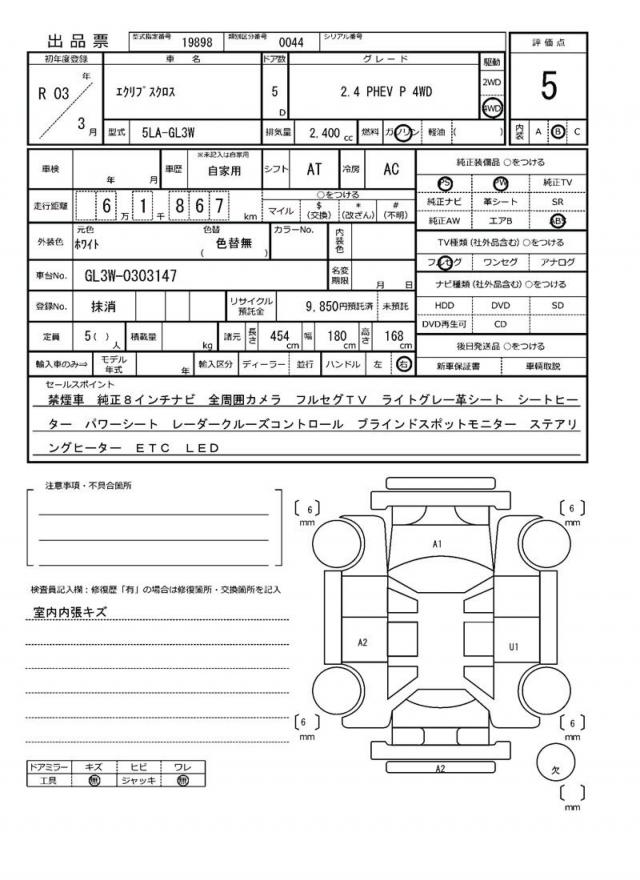 出品票 型式指定番号 19898 類別区分番号 0044 シリアル番号
評価点
5
内装 A B C
初年度登録 車名 ドア数 グレード 駆動
R 03 年 3 月 ｴｸﾘﾌﾟｽｸﾛｽ 5 D 2.4 PHEV P 4WD 2WD 4WD
型式 5LA-GL3W 排気量 2,400 cc 燃料 ガソリン 軽油 ( )
車検 年 月 車歴 ※未記入は自家用 自家用 シフト AT 冷房 AC
走行距離 6 万 1 千 8 6 7 km ○をつける
マイル $ (交換) * (改ざん) # (不明)
外装色 元色 ﾎﾜｲﾄ 色替 ( 色替無 ) カラーNo. 内装色
車台No. GL3W-0303147 名変期限 月 日
登録No. 抹消 リサイクル預託金 9,850円預託済 未預託
定員 5( ) 人 積載量 kg 諸元 長さ 454 cm 幅 180 cm 高さ 168 cm
輸入車のみ⇒ モデル年式 年 輸入区分 ディーラー 並行 ハンドル 左 右
純正装備品 ○をつける
PS PW 純正TV
純正ナビ 革シート SR
純正AW エアB ABS
TV種類 (社外品含む) ○をつける
フルセグ ワンセグ アナログ
ナビ種類 (社外品含む) ○をつける
HDD DVD SD
DVD再生可 CD
後日発送品 ○をつける
新車保証書 車輌取説
セールスポイント
禁煙車 純正８インチナビ 全周囲カメラ フルセグＴＶ ライトグレー革シート シートヒー
ター パワーシート レーダークルーズコントロール ブラインドスポットモニター ステアリ
ングヒーター ＥＴＣ ＬＥＤ
注意事項・不具合箇所
検査員記入欄：修復歴「有」の場合は修復箇所・交換箇所を記入
室内内張キズ
ドアミラー キズ ヒビ ワレ
工具 無 ジャッキ 無
6 mm 6 mm
A1
A2 U1
6 mm 6 mm
A2
欠
mm